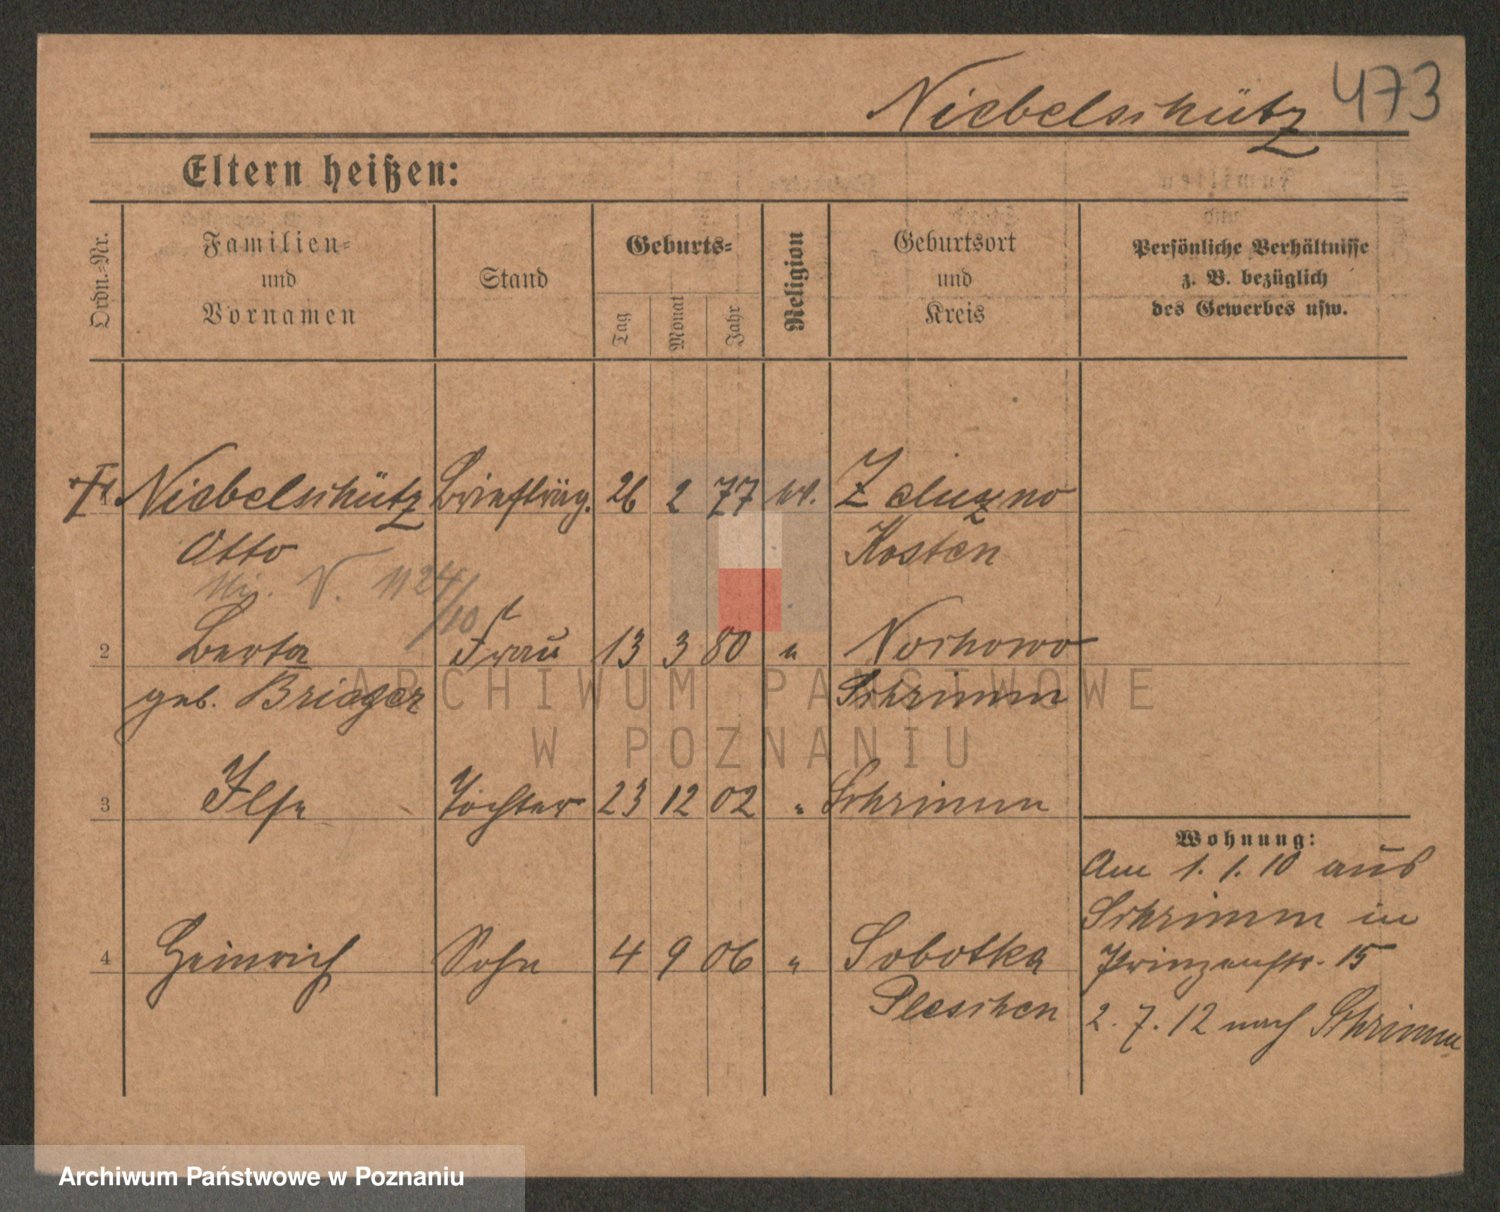 Niebelschütz 473
Eltern heißen:
Ordn.-Nr.
Familien-
und
Vornamen
Stand
Geburts-
Tag
Monat
Jahr
Religion
Geburtsort
und
Kreis
Persönliche Verhältnisse
z. B. bezüglich
des Gewerbes usw.
1 Niebelschütz Briefträg. 26 2 77 ev.
Otto Kosten
N. 1124/10
2 Berta Frau 13 3 80 " Nochowo
geb. Brieger Schrimm
3 Ilse Tochter 23 12 02 " Schrimm
Wohnung:
Am 1.1.10 aus
Schrimm in
4 Heinrich Sohn 4 9 06 " Sobotka
Prinzenstr. 15
Pleschen
2.7.12 nach Schrimm
ARCHIWUM PAŃSTWOWE
W POZNANIU
Archiwum Państwowe w Poznaniu